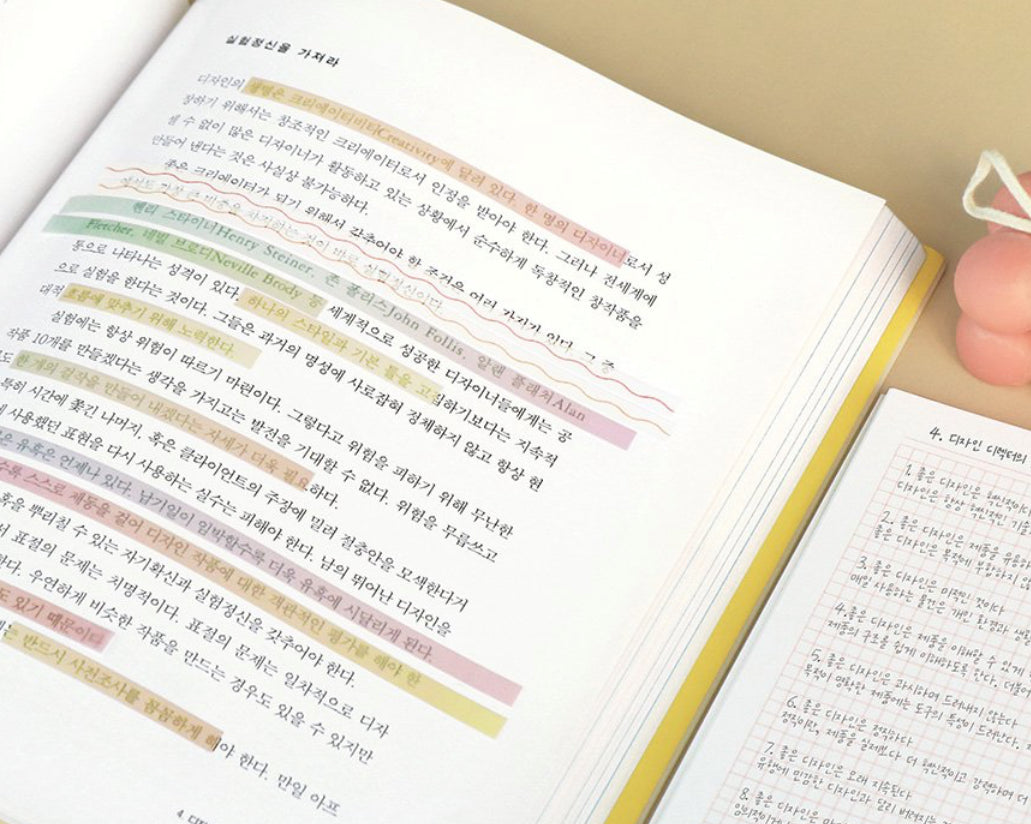 실험정신을 가져라
디자인의 생명은 크리에이티비티Creativity에 달려 있다. 한 명의 디자이너로서 성
장하기 위해서는 창조적인 크리에이터로서 인정을 받아야 한다. 그러나 전세계에
셀 수 없이 많은 디자이너가 활동하고 있는 상황에서 순수하게 독창적인 창작품을
만들어 낸다는 것은 사실상 불가능하다.
좋은 크리에이터가 되기 위해서 갖추어야 할 조건은 여러 가지가 있다. 그 중
에서도 가장 큰 비중을 차지하는 것이 바로 실험정신이다.
헨리 스타이너Henry Steiner, 존 폴리스John Follis, 알랜 플래처Alan
Fletcher, 네빌 브로디Neville Brody 등 세계적으로 성공한 디자이너들에게는 공
통으로 나타나는 성격이 있다. 하나의 스타일과 기본 틀을 고집하기보다는 지속적
으로 실험을 한다는 것이다. 그들은 과거의 명성에 사로잡혀 정체하지 않고 항상 현
대적 흐름에 맞추기 위해 노력한다.
실험에는 항상 위험이 따르기 마련이다. 그렇다고 위험을 피하기 위해 무난한
작품 10개를 만들겠다는 생각을 가지고는 발전을 기대할 수 없다. 위험을 무릅쓰고
도 한 개의 걸작을 만들어 내겠다는 자세가 더욱 필요하다.
특히 시간에 쫓긴 나머지, 혹은 클라이언트의 주장에 밀려 절충안을 모색한다거
사용했던 표현을 다시 사용하는 실수는 피해야 한다. 남의 뛰어난 디자인을
은 유혹은 언제나 있다. 납기일이 임박할수록 더욱 유혹에 시달리게 된다.
수록 스스로 제동을 걸어 디자인 작품에 대한 객관적인 평가를 해야 한
혹을 뿌리칠 수 있는 자기확신과 실험정신을 갖추어야 한다.
서 표절의 문제는 치명적이다. 표절의 문제는 일차적으로 디자
한다. 우연하게 비슷한 작품을 만드는 경우도 있을 수 있지만
도 있기 때문이다
는 반드시 사전조사를 꼼꼼하게 해야 한다. 만일 아프
4. 디자
4. 디자인 디렉터의
1. 좋은 디자인은 혁신적이
디자인은 항상 혁신적인 기술
2. 좋은 디자인은 제품을 유용
좋은 디자인은 목적에 부합하지 않
3. 좋은 디자인은 미적인 것이다
매일 사용하는 물건은 개인 환경과 생활
4. 좋은 디자인은 제품을 이해할 수 있게
제품의 구조를 쉽게 이해하도록 한다. 더불
5. 좋은 디자인은 과시하며 드러내지 않는다
목적이 명확한 제품에는 도구의 특성이 드러난다.
6. 좋은 디자인은 정직하다
정직이란, 제품을 실제보다 더 혁신적이고 강력하며 더
7. 좋은 디자인은 오래 지속된다
유행에 민감한 디자인과 달리 버려지는
8. 좋은 디자인은